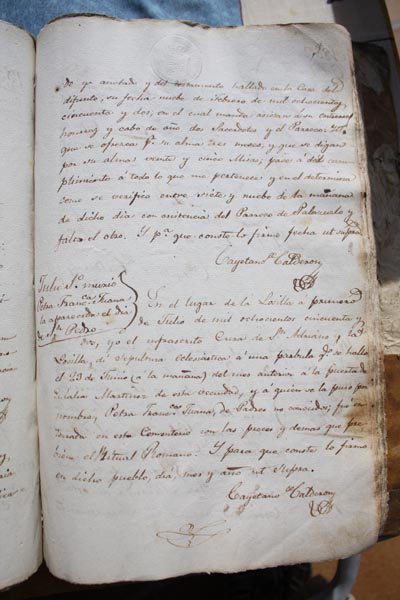 do yo avisado y del testamento hallado en la Casa del
difunto, su fecha nuebe de Febrero de mil ochocientos
cincuenta y dos, en el cual manda asistan a su entierro
honrras y cabo de año dos Sacerdotes y el Parroco
que se ofrezca pr su alma tres meses, y que se digan
por su alma veinte y cinco Misas; pase a dar cum
plimiento á todo lo que me pertenece y en el
como se verificó entre siete y nuebe de la mañana
de dicho dia con asistencia del Parroco de Palazuelo y
faltó el otro. Y pa que conste lo firmo fecha ut supra
Cayetano Calderon
Julio 1º murió
Petra Francca Juana
la aparecida el dia
de Sn Pedro
En el lugar de la Lorilla a primero
de Julio de mil ochocientos cincuenta y
dos, yo el infrascrito Cura de Sn Adriano, y la
Lorilla, di sepultura eclesiástica á una parbula qe se halló
el 29 de Junio (a la mañana) del mes anterior á la puerta de
Martinez de esta vecindad, y á quien se la puso por
nombre, Petra Francca Juana, de Padres no conocidos; fue
en este Cementerio con las preces y demas que pre
biene el Ritual Romano. Y para que conste lo firmo
en dicho pueblo, dia, mes y año ut supra.
Cayetano Calderon